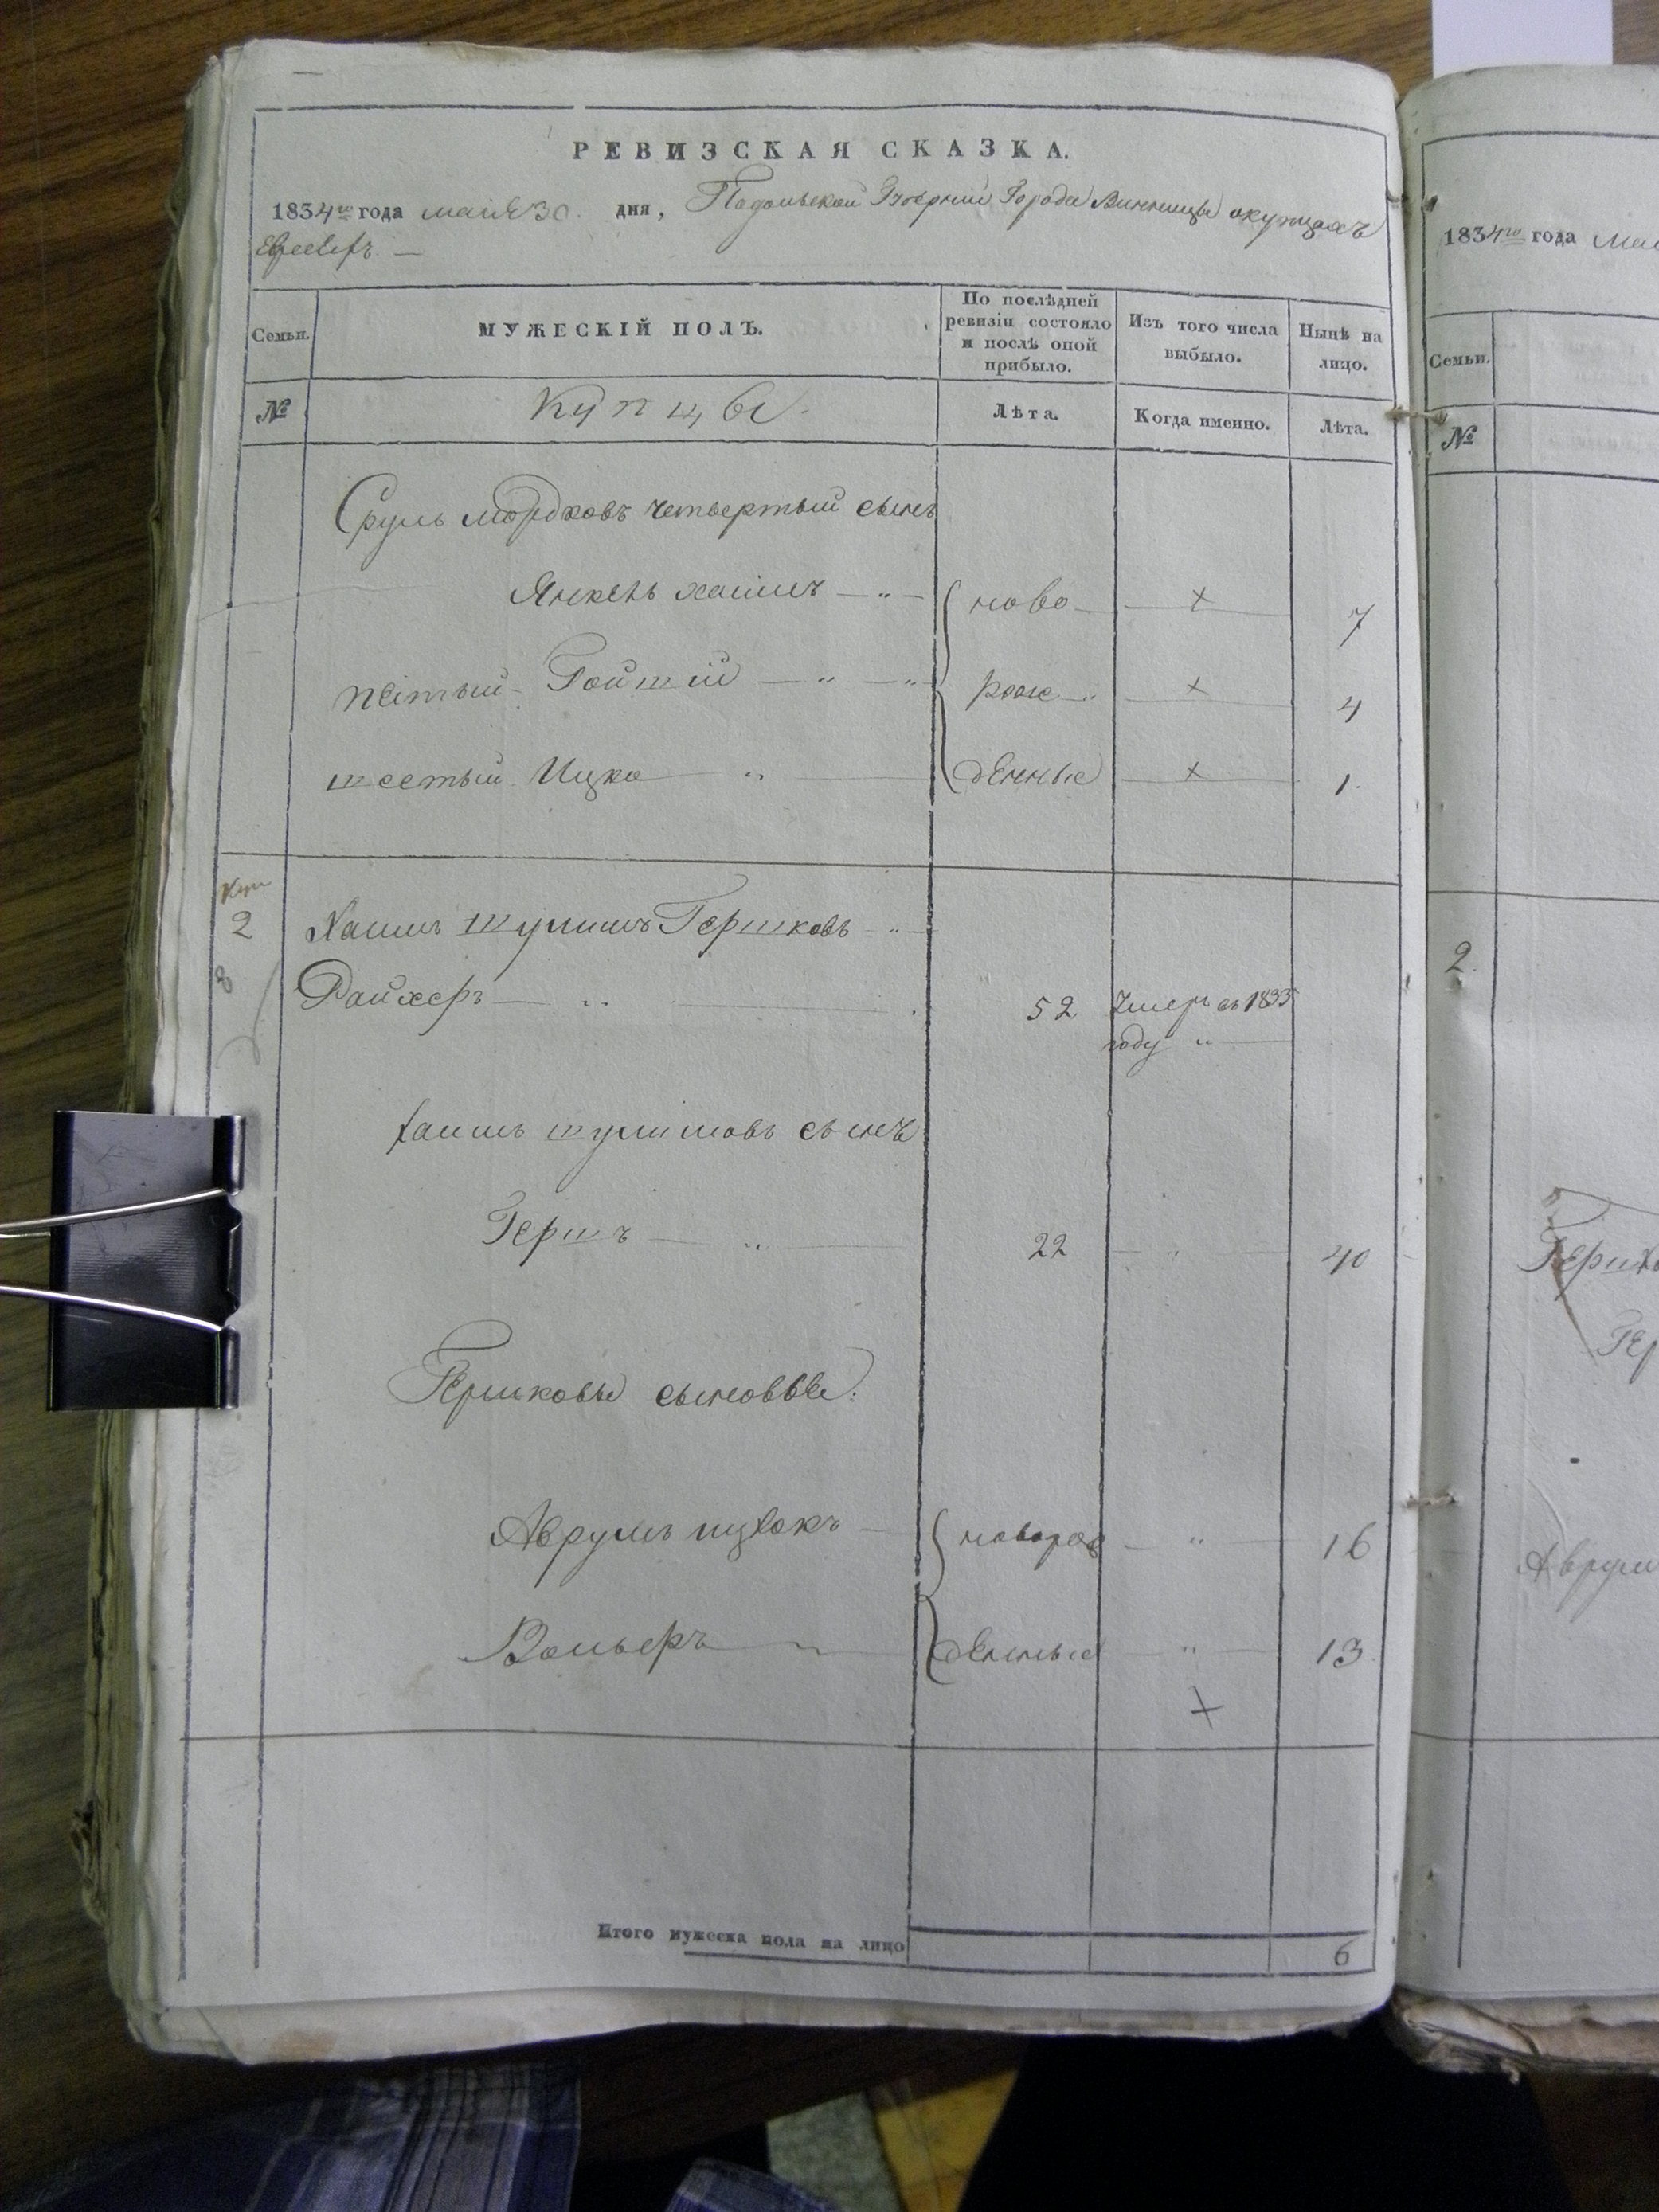 РЕВИЗСКАЯ СКАЗКА.
1834го года мая 30. дня, Подольской Губернии Города Винницы окупцахъ
Евреяхъ. —
Семьи.
МУЖЕСКІЙ ПОЛЪ.
По послѣдней
ревизіи состояло
и послѣ оной
прибыло.
Изъ того числа
выбыло.
Нынѣ на
лицо.
№
Купцы.
Лѣта.
Когда именно.
Лѣта.
Сруль Мордковъ четвертый сынъ
Янкель хаимъ — „ — ново — + 7
пятый - — „ — „ рож — „ + 4
шестый Ицко — „ — денные + 1.
Куп
2 Хаимъ шулимъ Гершковъ — „ —
8
Райхеръ — „ — 52 Умеръ въ 1833
году „ —
хаимъ шулимовъ сынъ
Гершъ — „ — 22 — „ — 40
Гершковы сыновье.
Аврумъ ицкокъ — новорож — „ — 16
Вольеръ — „ — денные — „ — 13.
+
Итого мужеска пола на лицо 6
1834го года
Семьи.
№
2.
Аврум